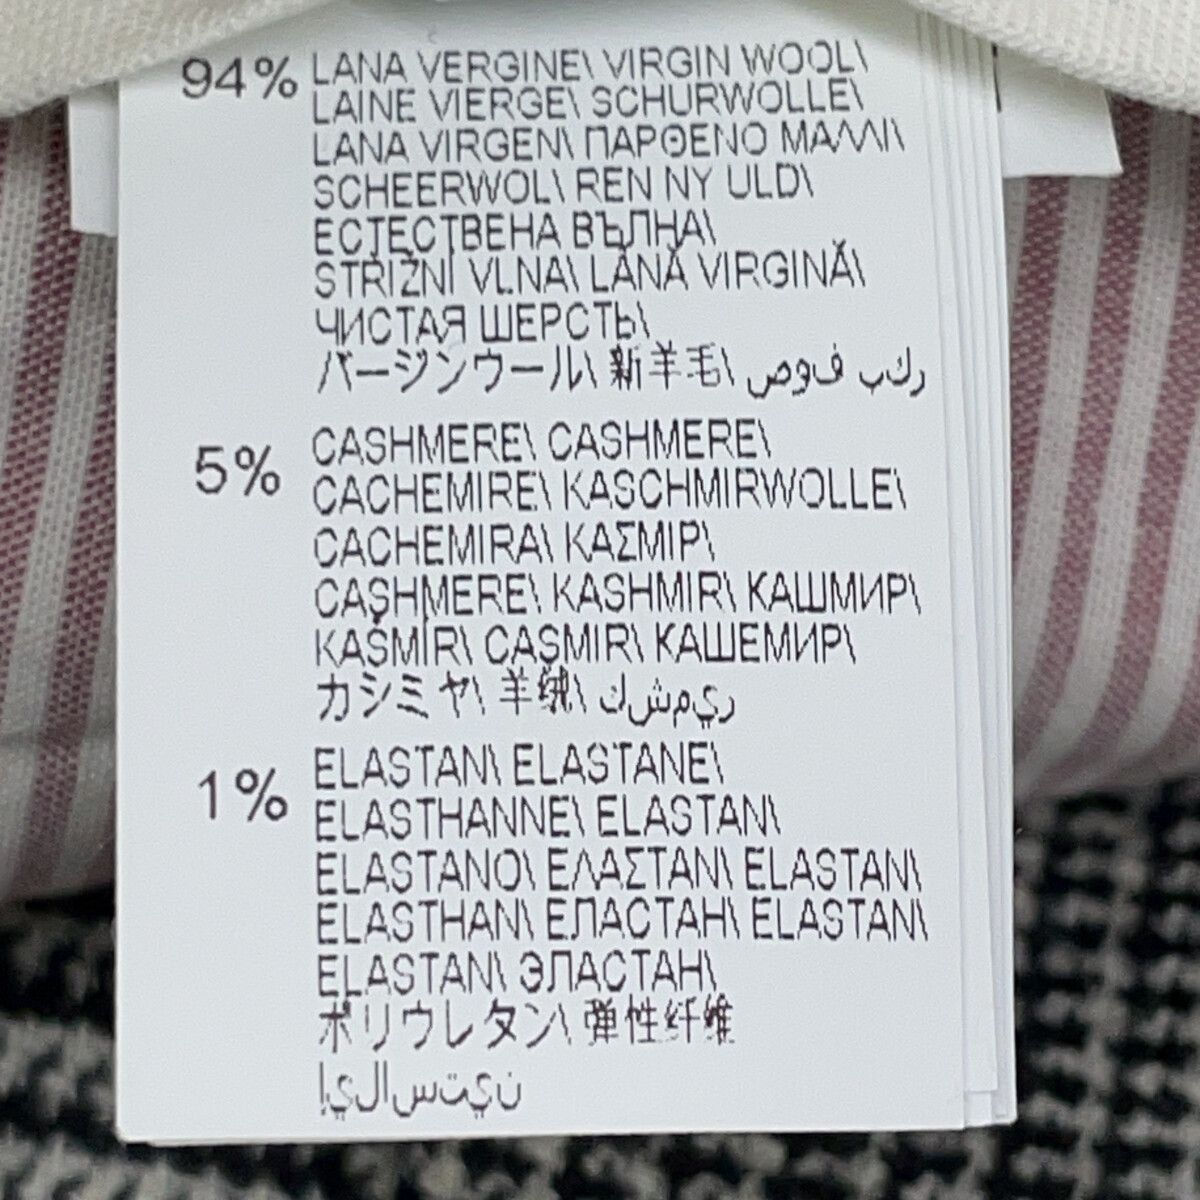 94% LANA VERGINE\ VIRGIN WOOL\
LAINE VIERGE\ SCHURWOLLE\
LANA VIRGEN\ ΠΑΡΘΕΝΟ ΜΑΛΛΙ\
SCHEERWOL\ REN NY ULD\
ЕСТЕСТВЕНА ВЪЛНА\
STŘIŽNÍ VLNA\ LÂNĂ VIRGINĂ\
ЧИСТАЯ ШЕРСТЬ\
バージンウール\ 新羊毛\ صوف بكر
5% CASHMERE\ CASHMERE\
CACHEMIRE\ KASCHMIRWOLLE\
CACHEMIRA\ ΚΑΣΜΙΡ\
CASHMERE\ KASHMIR\ КАШМИР\
KAŠMÍR\ CAŞMIR\ КАШЕМИР\
カシミヤ\ 羊绒\ كشمير
1% ELASTAN\ ELASTANE\
ELASTHANNE\ ELASTAN\
ELASTANO\ ΕΛΑΣΤΑΝ\ ELASTAN\
ELASTHAN\ ЕЛАСТАН\ ELASTAN\
ELASTAN\ ЭЛАСТАН\
ポリウレタン\ 弹性纤维
إيلاستين